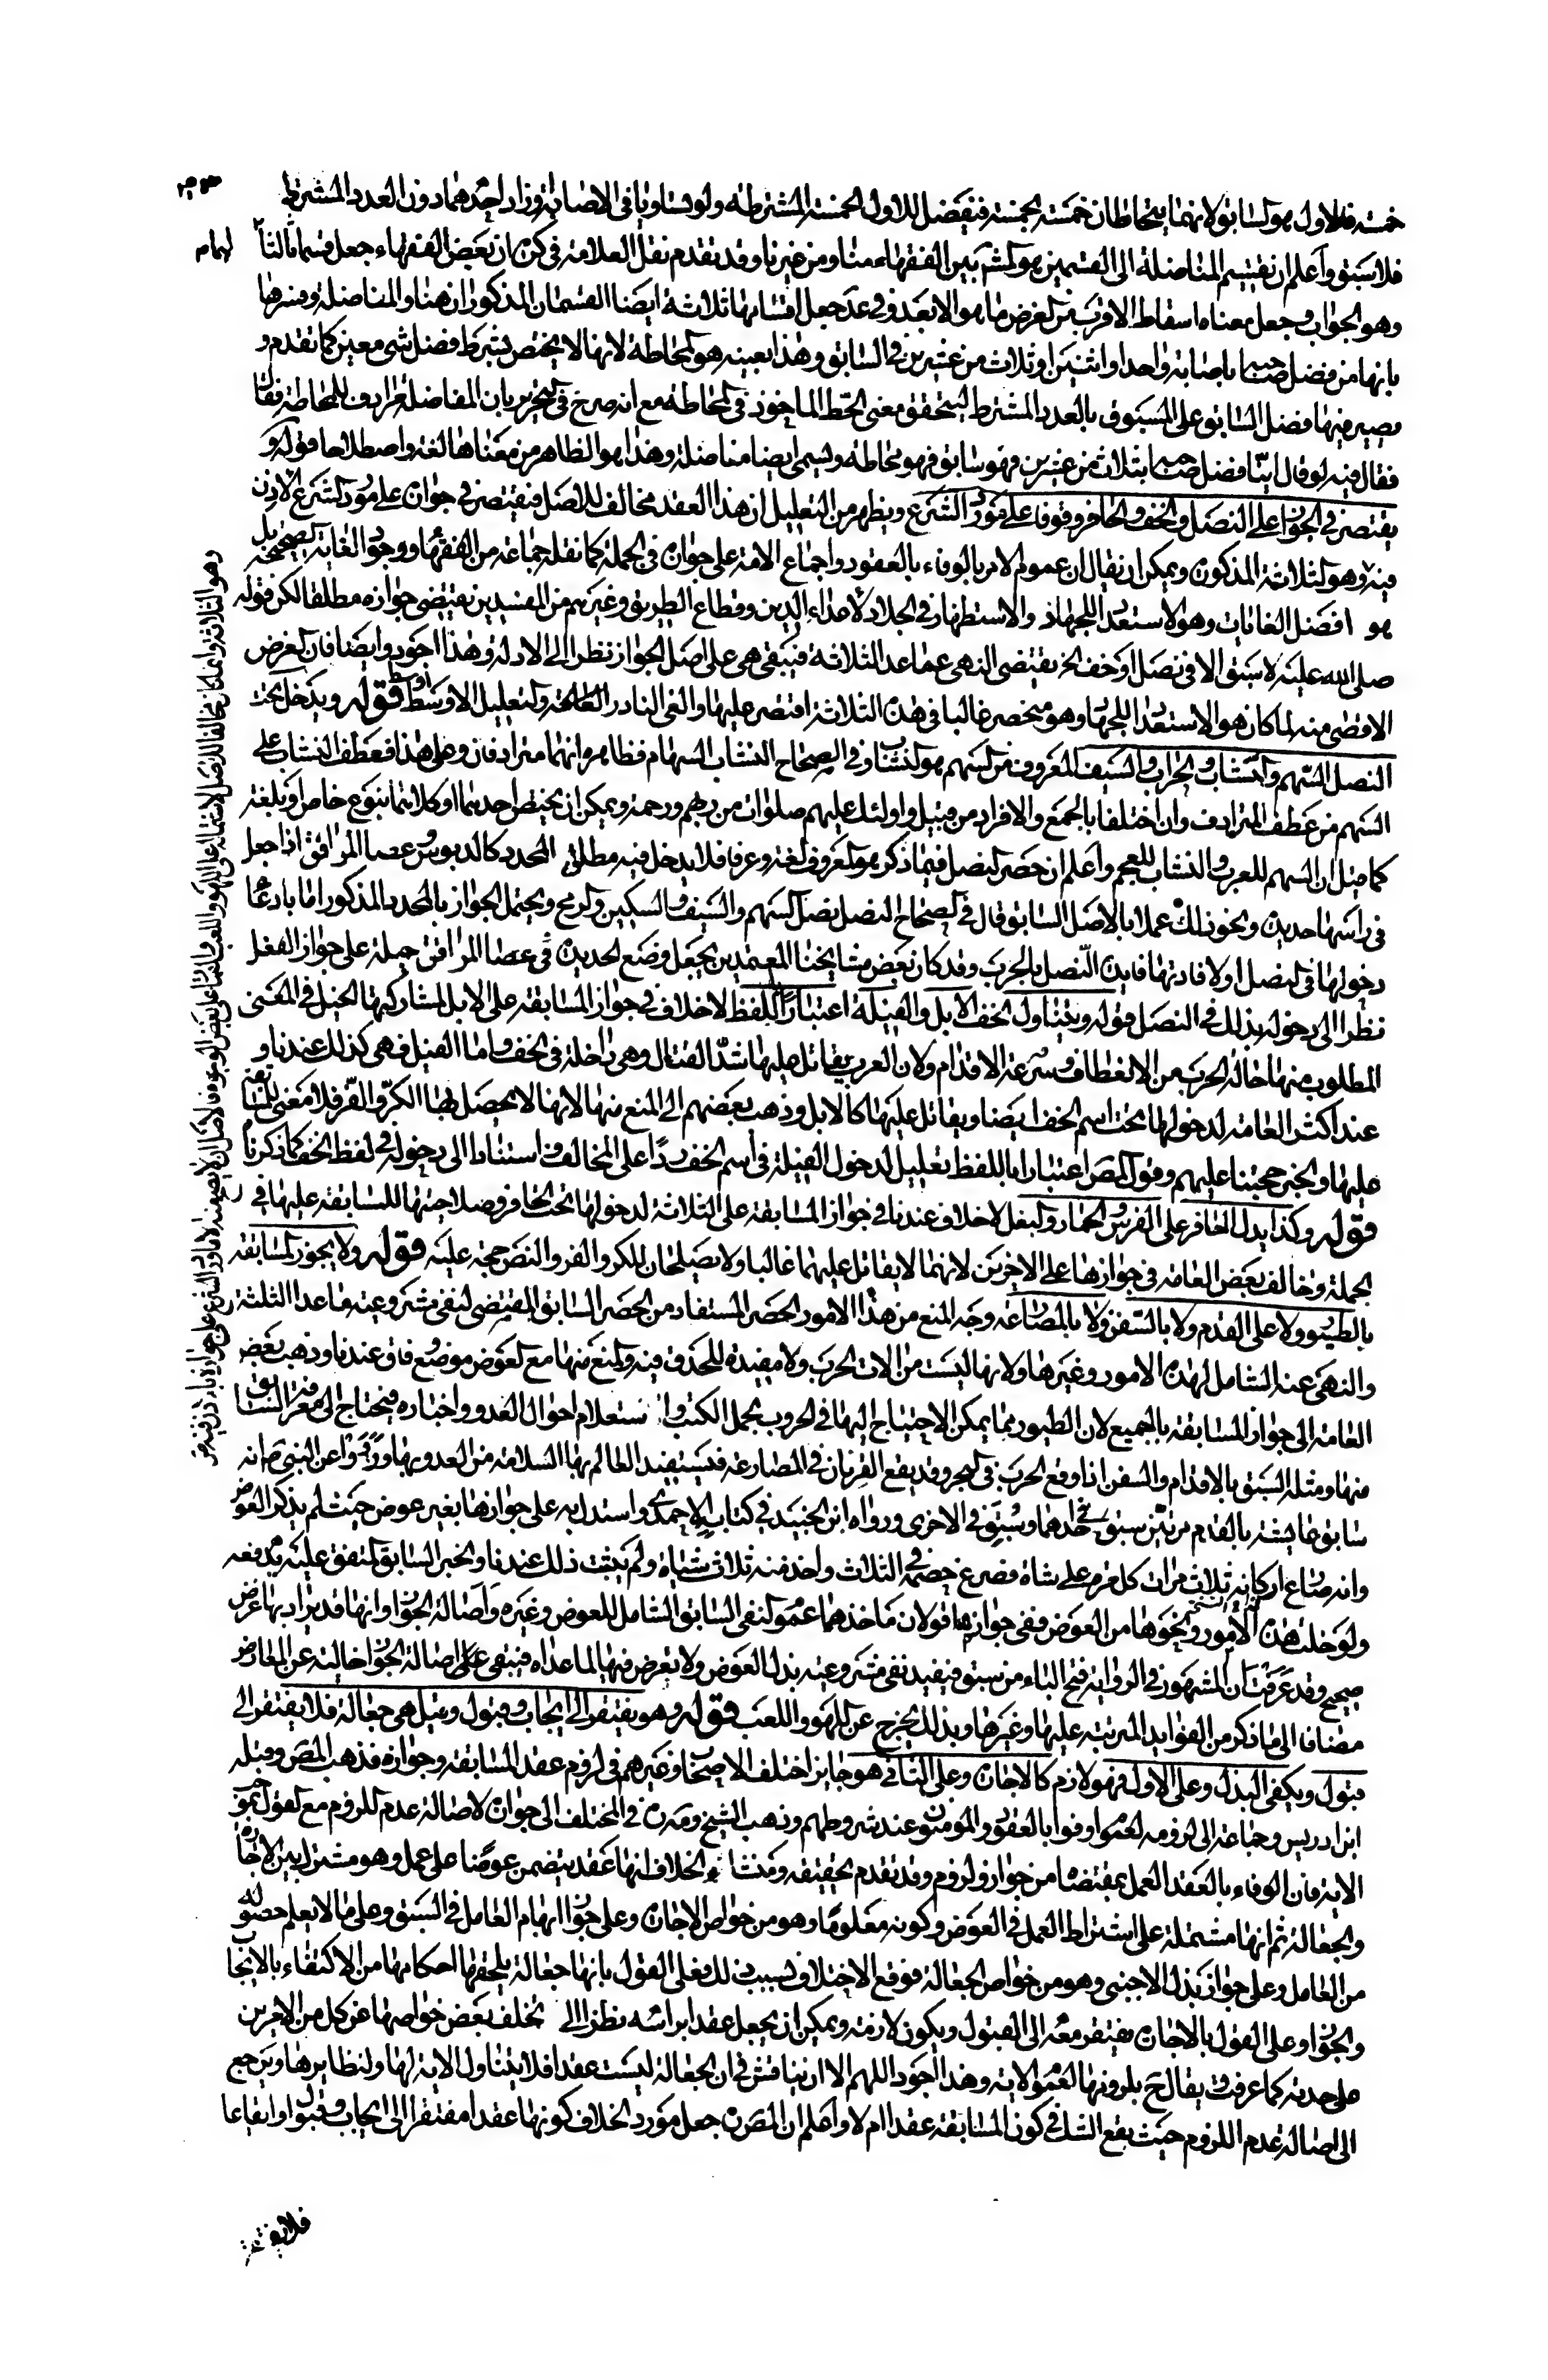 خمسة فالاول هو السابق لانهما يتحاطان خمسة بخمسة فيفضل للاول الخمسة المشترطة ولو تساويا في الاصابة وزاد احدهما دون العدد المشترط
فلا سبق واعلم ان تقسيم المناضلة الى القسمين هو المشهور بين الفقهاء منا ومن غيرنا وقد تقدم نقل العلامة في كره ان بعض الفقهاء جعل قسما ثالثا
وهو الحواب وجعل معناه اسقاط الاقرب من الغرض ما هو الابعد وفي عد جعل اقسامها ثلاثة ايضا القسمان المذكوران هنا والمفاضلة وفسرها
بانها من فضل صاحبه باصابة واحدا واثنتين او ثلاث من عشرين في السابق وهذا بعينه هو المحاطة لانها لا يختص بشرط فضل شئ معين كما تقدم و
يصير منها فضل السابق على المسبوق بالعدد المشترط ليتحقق معنى الحط الماخوذ في المحاطة مع انه صرح في التحرير بان المفاضلة مرادف للمحاطة
فقال فيه لو قال اينا فضل صاحبه بثلاث من عشرين فهو سابق فهو محاطة ويسمى ايضا مناضلة وهذا هو الظاهر من معناها لغة واصطلاحا قوله و
يقتصر في الجواز على النصل والخف والحافر وقوفا على مورد الشرع ويظهر من التعليل ان هذا العقد مخالف للاصل فيقتصر في جوازه على مورد الشرع الاذن
فيه وهو الثلاثة المذكورة ويمكن ان يقال ان عموم الامر بالوفاء بالعقود واجماع الامة على جوازه في الجملة كما نقله جماعة من الفقهاء ووجود الغاية الصحيحة بل
هو افضل الغايات وهو الاستعداد للجهاد والاستظهار في الجلاد لاعداء الدين وقطاع الطريق وغيرهم من المفسدين يقتضى جوازه مطلقا لكن قوله
صلى الله عليه لا سبق الا في نصل او خف الخ يقتضى النهى عما عدا الثلاثة فيبقى هى على اصل الجواز نظرا الى الادلة وهذا اجود وايضا فان الغرض
الاقصى منه لما كان هو الاستعداد للجهاد وهو منحصر غالبا في هذه الثلاثة اقتصر عليها والغى النادر والتعليل الاوسط اوسط قوله ويدخل تحت
النصل السهم والنشاب والحراب والسيف المعروف من السهم هو النشاب وفي الصحاح النشاب السهام فظاهره انهما مترادفان وعلى هذا فعطف النشاب على
السهم من عطف المترادف وان اختلفا بالجمع والافراد من قبيل اولئك عليهم صلوات من ربهم ورحمة ويمكن ان يختص احدهما او كلاهما بنوع خاص او بلغة
كما قيل ان السهم للعرب والنشاب للعجم واعلم ان حصر النصل فيما ذكر هو المعروف لغة وعرفا فلا يدخل فيه مطلق المحدد كالدبوس وعصا المرافق اذا جعل
في راسها حديدة ونحو ذلك عملا بالاصل السابق قال في الصحاح النصل نصل السهم والسيف والسكين والرمح ويحتمل الجواز بالمحدد المذكور اما بادعاء
دخولها في النصل او لافادتها فايدة النصل بالحرب وقد كان بعض مشايخنا المعتمدين يجعل وضع الحديدة في عصا المرافق حيلة على جواز الفعل
نظرا الى دخوله بذلك في النصل قوله ويتناول الخف الابل والفيلة اعتبارا باللفظ لا خلاف في جواز المسابقة على الابل لمشاركتها الخيل في المعنى
المطلوب منها حالة الحرب من الانعطاف وسرعة الاقدام ولان العرب يقاتل عليها اشد القتال وهى داخلة في الخف واما الفيل فهى كذلك عندنا و
عند اكثر العامة لدخولها تحت اسم الخف ايضا ويقاتل عليها كالابل وذهب بعضهم الى المنع منها لانها لا يحصل بها الكر والفر فلا معنى للمسابقة
عليها والخبر حجتنا عليهم وقول المص اعتبارا باللفظ تعليل لدخول الفيلة في اسم الخف ردا على المخالف واستنادا الى دخوله في لفظ الخف كما ذكرنا
قوله وكذا يدل الحافر على الفرس والحمار والبغل لا خلاف عندنا في جواز المسابقة على الثلاثة لدخولها تحت الحافر وصلاحيتها للمسابقة عليها في
الجملة وخالف بعض العامة في جوازها على الاخيرين لانهما لا يقاتل عليهما غالبا ولا يصلحان للكر والفر والنص حجة عليه قوله ولا يجوز المسابقة
بالطيور ولا على القدم ولا بالسفن ولا بالمصارعة وجه المنع من هذه الامور الحصر المستفاد من الحصر السابق المقتضى لنفى مشروعية ما عدا الثلثة
والنهى عنه الشامل لهذه الامور وغيرها ولانها ليست من الات الحرب ولا مفيدة للحذق فيه والمنع منها مع العوض موضع وفاق عندنا وذهب بعض
العامة الى جواز المسابقة بالجميع لان الطيور مما يمكن الاحتياج اليها في الحروب بحمل الكتب واستعلام احوال العدو واخباره فيحتاج الى معرفة السابق
منها ومثله السبق بالاقدام والسفن اذا وقع الحرب في البحر وقد يقع القرنان في المصارعة فيستفيد العالم بها السلامة من العدو بها ورووا عن النبى ص انه
سابق عايشة بالقدم مرتين سبق في احدهما وسبق في الاخرى ورواه ابن الجنيد في كتابه الاحمدى واستدل به على جوازها بغير عوض حيث لم يذكر العوض
وانه صارع ركانة ثلاث مرات كل مرة على شاة فصرع خصمه في الثلاث واخذ منه ثلاث شياة ولم يثبت ذلك عندنا والخبر السابق المتفق عليه يدفعه
ولو خلت هذه الامور ونحوها من العوض ففى جوازها قولان ماخذهما عموم النفى السابق الشامل للعوض وغيره واصالة الجواز وانها قد يراد بها غرض
صحيح وقد عرفت ان المشهور في الرواية فتح الباء من سبق فيفيد نفى مشروعية بذل العوض ولا تعرض فيها لما عداه فيبقى على اصالة الجواز خالية عن المعارض
مضافا الى ما ذكر من الفوايد المرتبة عليها وغيرها وبذلك يخرج عن اللهو واللعب قوله وهو يفتقر الى ايجاب وقبول وقيل هى جعالة فلا يفتقر الى
قبول ويكفى البذل وعلى الاول فهو لازم كالاجارة وعلى الثاني هو جايز اختلف الاصحاب وغيرهم في لزوم عقد المسابقة وجوازه فذهب المص وقبله
ابن ادريس وجماعة الى لزومه لعموم اوفوا بالعقود والمؤمنون عند شروطهم وذهب الشيخ وفي المختلف الى جوازه لاصالة عدم اللزوم مع القول بموجب
الاية فان الوفاء بالعقد العمل بمقتضاه من جواز ولزوم وقد تقدم تحقيقه ومنشاء الخلاف انها عقد يتضمن عوضا على عمل وهو مشترك بين الاجارة
والجعالة ثم انها مشتملة على اشتراط العمل في العوض وكونه معلوما وهو من خواص الاجارة وعلى جواز ابهام العامل في السبق وعلى ما لا يعلم حصوله
من العامل وعلى جواز بذل الاجنبى وهو من خواص الجعالة فوقع الاختلاف بسبب ذلك فعلى القول بانها جعالة يلحقها احكامها من الاكتفاء بالايجاب
والجواز وعلى القول بالاجارة يفتقر معه الى القبول ويكون لازمة ويمكن ان يجعل عقدا براسه نظرا الى تخلف بعض خواصها عن كل من الامرين
على حدته كما عرفت ويقال ح بلزومها لعموم الاية وهذا اجود اللهم الا ان يناقش في ان الجعالة ليست عقدا فلا يتناول الاية لها ولنظايرها ويرجع
الى اصالة عدم اللزوم حيث يقع الشك في كون المسابقة عقدا ام لا واعلم ان المص ره جعل مورد الخلاف كونها عقدا مفتقرا الى ايجاب وقبول او ايقاعا